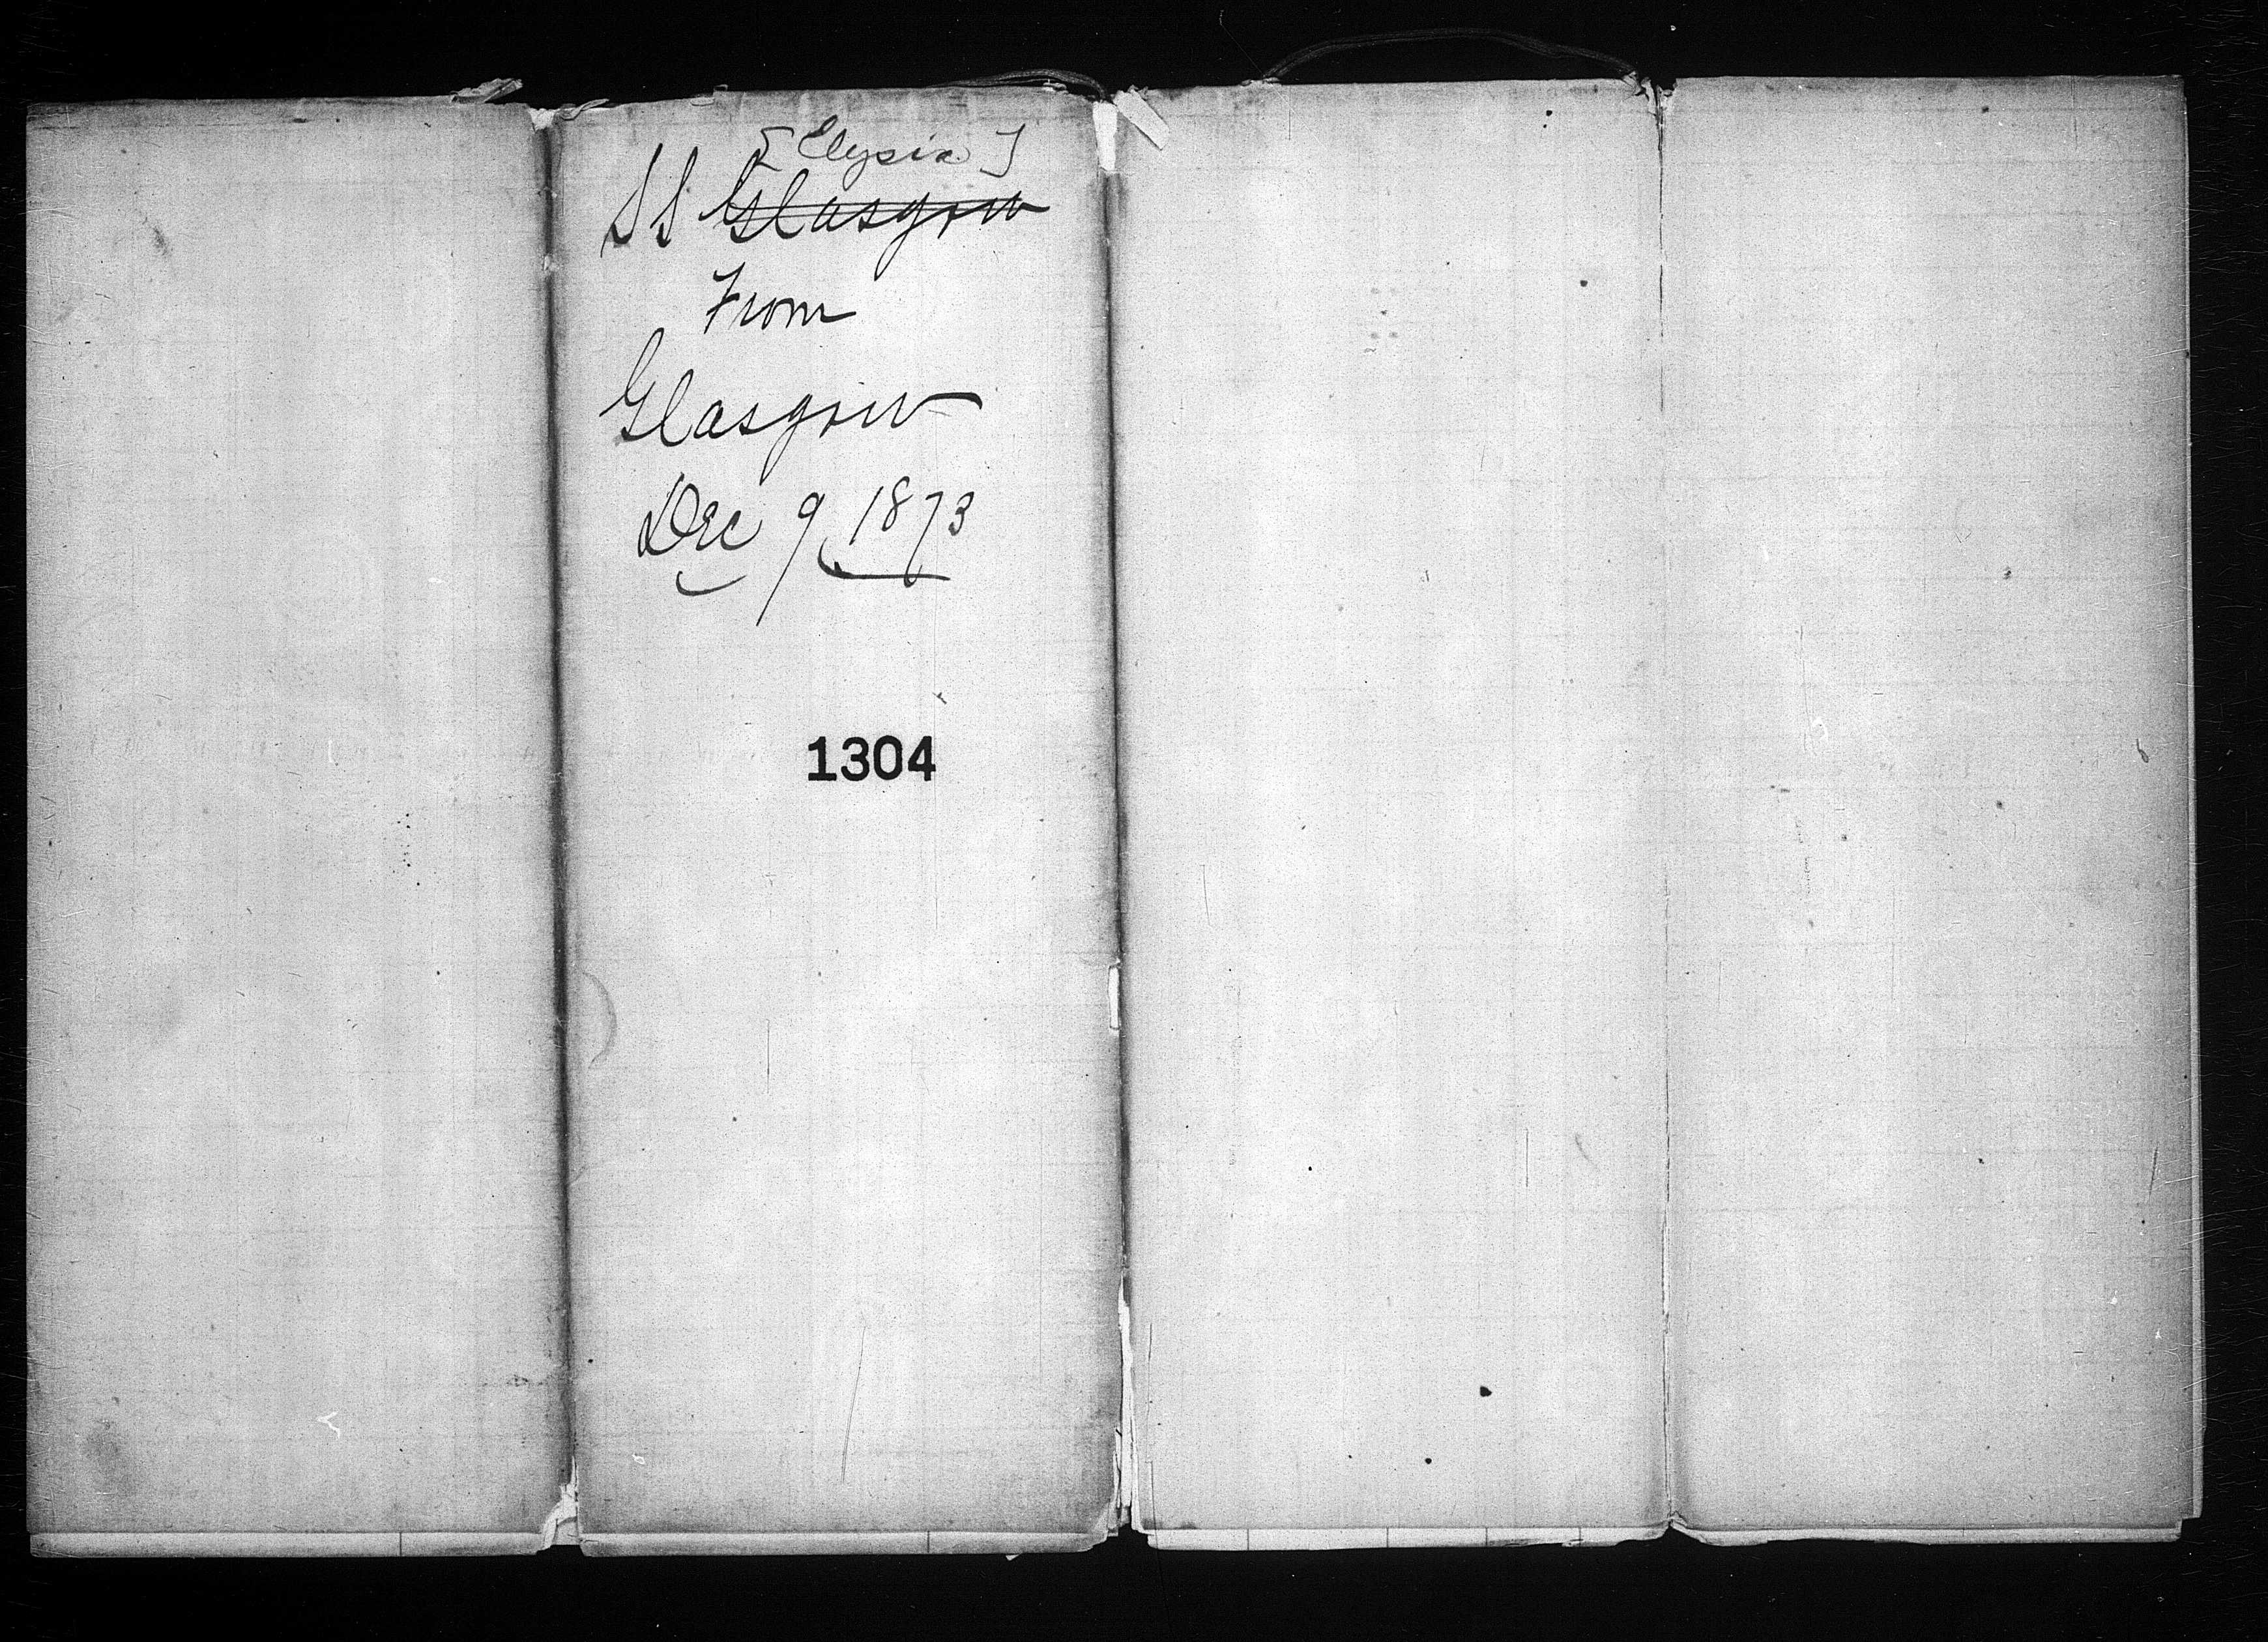 [Elysia]
SS Glasgow
From
Glasgow
Dec 9 1873
1304